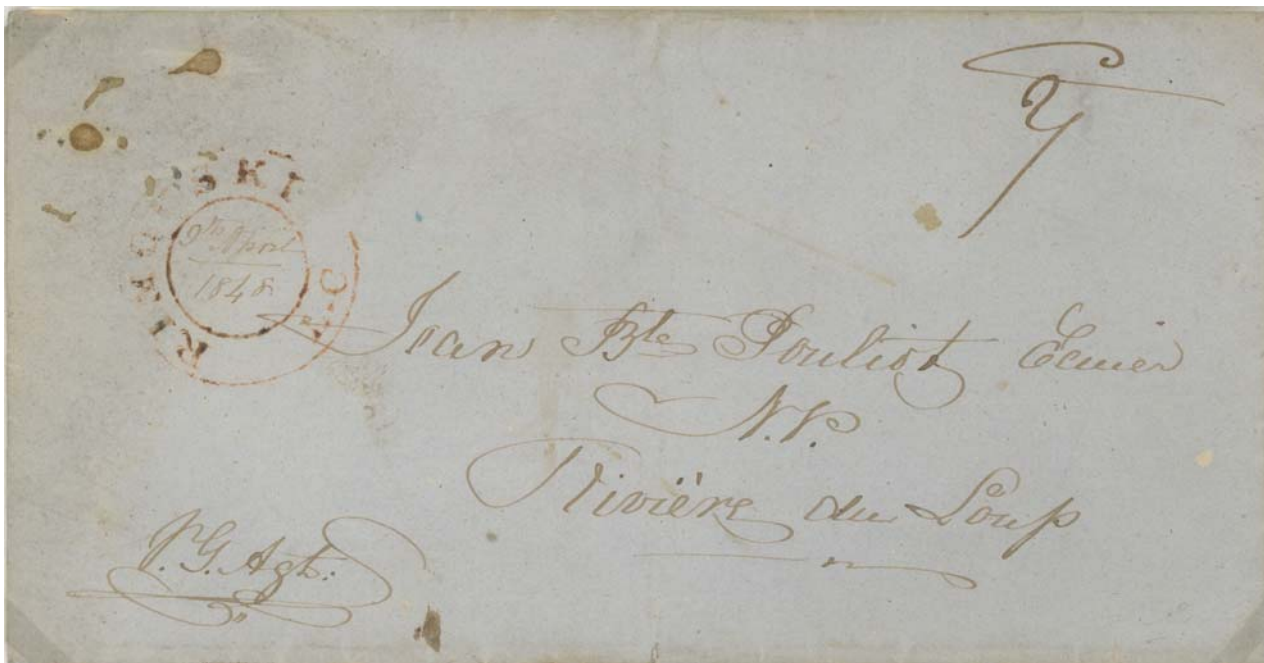 RIMOUSKI
L-C
9th April
1848
Jean Bte Pouliot Ecuier
N.P.
Rivière du Loup
P.G. Agt.